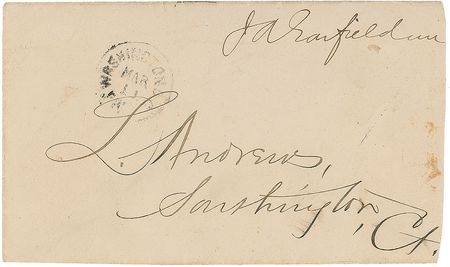 J A Garfield mc
WASHINGTON
MAR
11
L. Andrews,
Southington,
Ct.